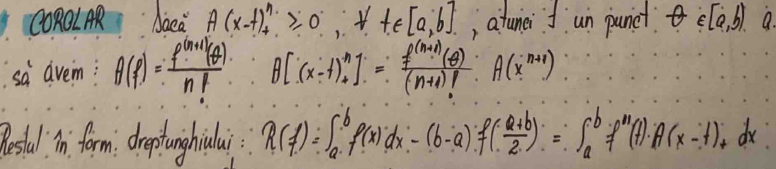 COROLAR Dacă A(x-t)₊ⁿ ≥ 0, ∀ t∈[a,b], atunci ∃ un punct θ∈[a,b) a.
să avem: A(f) = f⁽ⁿ⁺¹⁾(θ)/n! A[(x-t)₊ⁿ] = f⁽ⁿ⁺¹⁾(θ)/(n+1)! A(xⁿ⁺¹)
Restul în form. dreptunghiului: R(f) = ∫ₐᵇ f(x)dx - (b-a) f((a+b)/2) = ∫ₐᵇ f''(t)·A(x-t)₊ dx